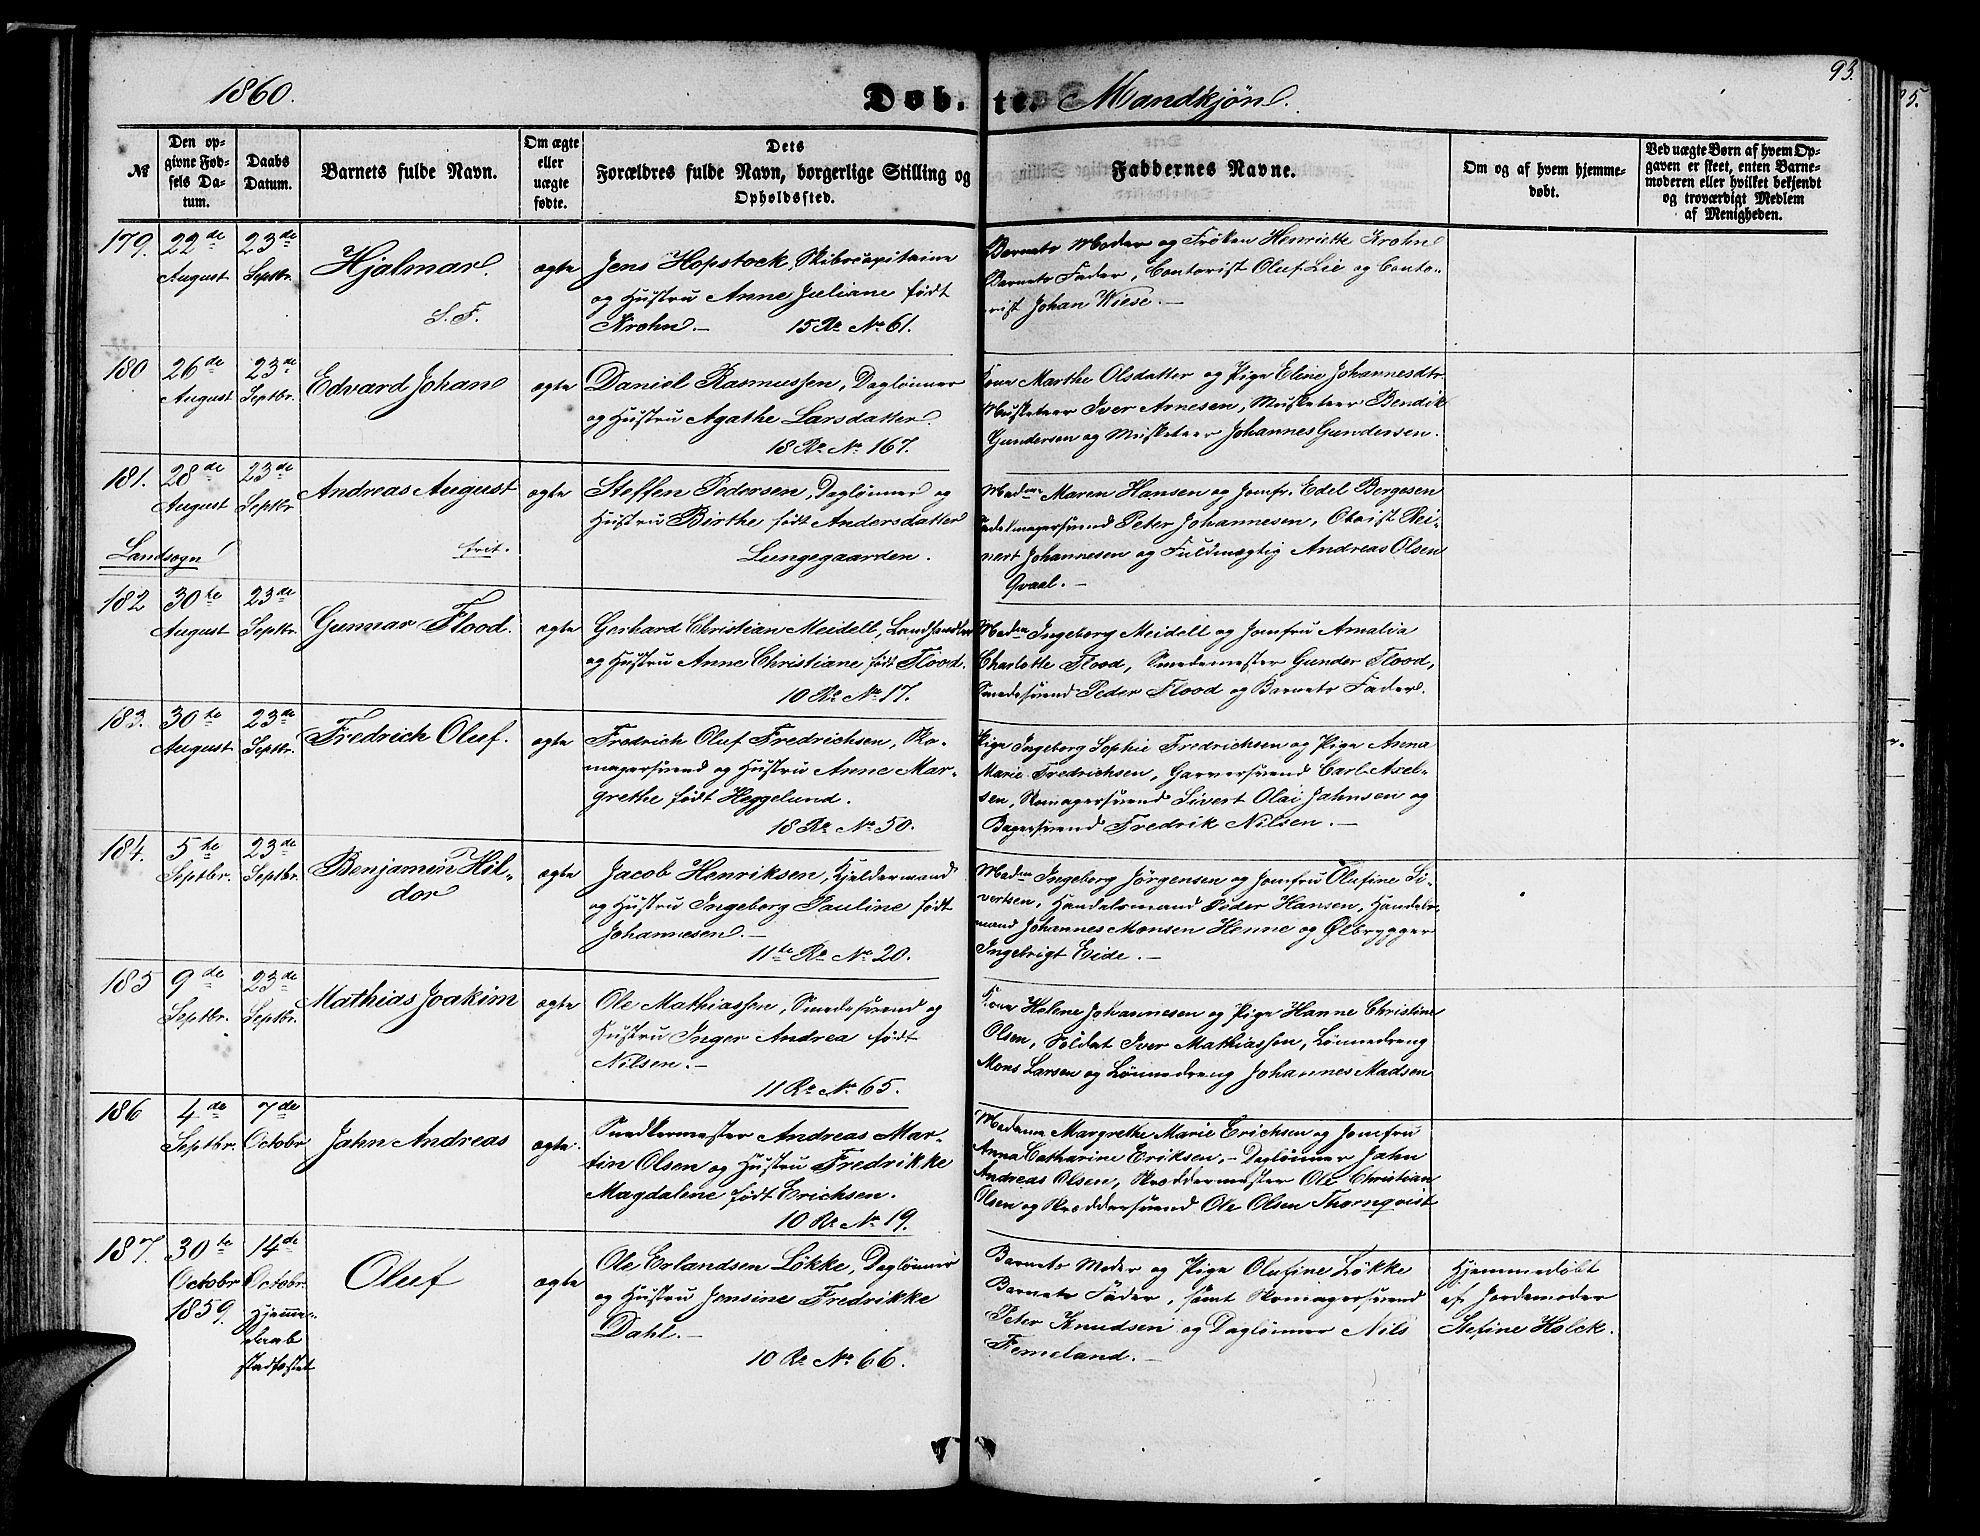 1860.
Døbte. Mandkjøn.
93.
№
Den op-
givne Fød-
sels Da-
tum.
Daabs
Datum.
Barnets fulde Navn.
Om ægte
eller
uægte
fødte.
Dets
Forældres fulde Navn, borgerlige Stilling og
Opholdssted.
Faddernes Navne.
Om og af hvem hjemme-
døbt.
Ved uægte Børn af hvem Op-
gaven er skeet, enten Barne-
moderen eller hvilket bekjendt
og troværdigt Medlem
af Menigheden.
179.
22de
August
23de
Septbr.
Hjalmar.
S. F.
ægte
Jens Hopstock, Skibscapitaine
og Hustru Anne Juliane født
Krohn.— 15 Re No 61.
Barnets Moder og Frøken Henriette Krohn
Barnets Fader, Contorist Oluf Lie og Conto-
rist Johan Wiese.—
180
26de
August
23de
Septbr.
Edvard Johan
ægte
Daniel Rasmussen, Daglønner
og Hustru Agathe Larsdatter.
18 Re No 167.
Kone Marthe Olsdatter og Pige Eline Johannesdtr.
Musketeer Iver Arnesen, Musketeer Bendik
Gundersen og Musketeer Johannes Gundersen.
181.
28de
August
Landsogn!
23de
Septbr
Andreas August
frit.
ægte
Steffen Pedersen, Daglønner og
Hustru Birthe født Andersdatter
Lungegaarden.
Madme Maren Hansen og Jomfr. Edel Bergesen
Sadelmagersvend Peter Johannesen, Rei-
nert Johannesen og Fuldmægtig Andreas Olsen
Qvaal.—
182
30te
August
23de
Septbr.
Gunnar Flood.
ægte
Gerhard Christian Meidell, Landhandler
og Hustru Anne Christiane født Flood.
10 Re No 17.
Madme Ingeborg Meidell og Jomfru Amalia
Charlotte Flood, Smedemester Gunder Flood,
Smedesvend Peder Flood og Barnets Fader.
183.
30te
August
23de
Septbr.
Fredrich Oluf.
ægte
Fredrich Oluf Fredrichsen, Sko-
magersvend og Hustru Anne Mar-
grethe født Heggelund.
18 Re No 50.
Pige Ingeborg Sophie Fredrichsen og Pige Anna
Marie Fredrichsen, Garversvend Carl Axel-
sen, Skomagersvend Sivert Olai Jahnsen og
Bagersvend Fredrik Nilsen.—
184.
5te
Septbr.
23de
Septbr.
Benjamin Hil-
dor
ægte
Jacob Henriksen, Kjeldermand
og Hustru Ingeborg Pauline født
Johannesen.—
11te Re No 20.
Madme Ingeborg Jørgensen og Jomfru Olufine Si-
vertsen, Handelsmand Peder Hansen, Handels-
mand Johannes Monsen Henne og Ølbrygger
Ingebrigt Eide.—
185
9de
Septbr.
23de
Septbr.
Mathias Joakim
ægte
Ole Mathiassen, Smedesvend og
Hustru Inger Andrea født
Nilsen.—
11 Re No 65.
Kone Helene Johannesen og Pige Hanne Christine
Olsen, Soldat Iver Mathiassen, Lønnedreng
Mons Larsen og Lønnedreng Johannes Madsen
186
4de
Septbr.
7de
Octobr
Jahn Andreas
ægte.
Snedkermester Andreas Mar-
tin Olsen og Hustru Fredrikke
Magdalene født Erichsen.
10 Re No 19.
Madame Margrethe Marie Erichsen og Jomfru
Anna Catharine Eriksen,— Daglønner Jahn
Andreas Olsen, Skræddermester Ole Christian
Olsen og Skræddersvend Ole Olsen Thornqvist
187.
30te
Octobr
1859.
14de
Octobr.
Hjemme-
daab
stadfæstet
Oluf
ægte
Ole Erlandsen Løkke, Daglønner
og Hustru Jensine Fredrikke
Dahl.—
10 Re No 66.
Barnets Moder og Pige Olufine Løkke
Barnets Fader, samt Skomagersvend
Peter Knudsen og Daglønner Nils
Femeland.—
Hjemmedøbt
af Jordemoder
Stefine Holck.